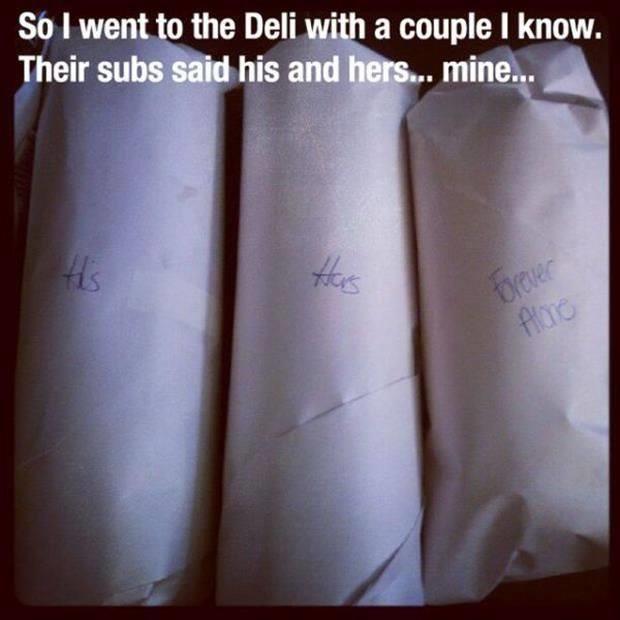 So I went to the Deli with a couple I know.
Their subs said his and hers... mine...
His
Hers
Forever
Alone